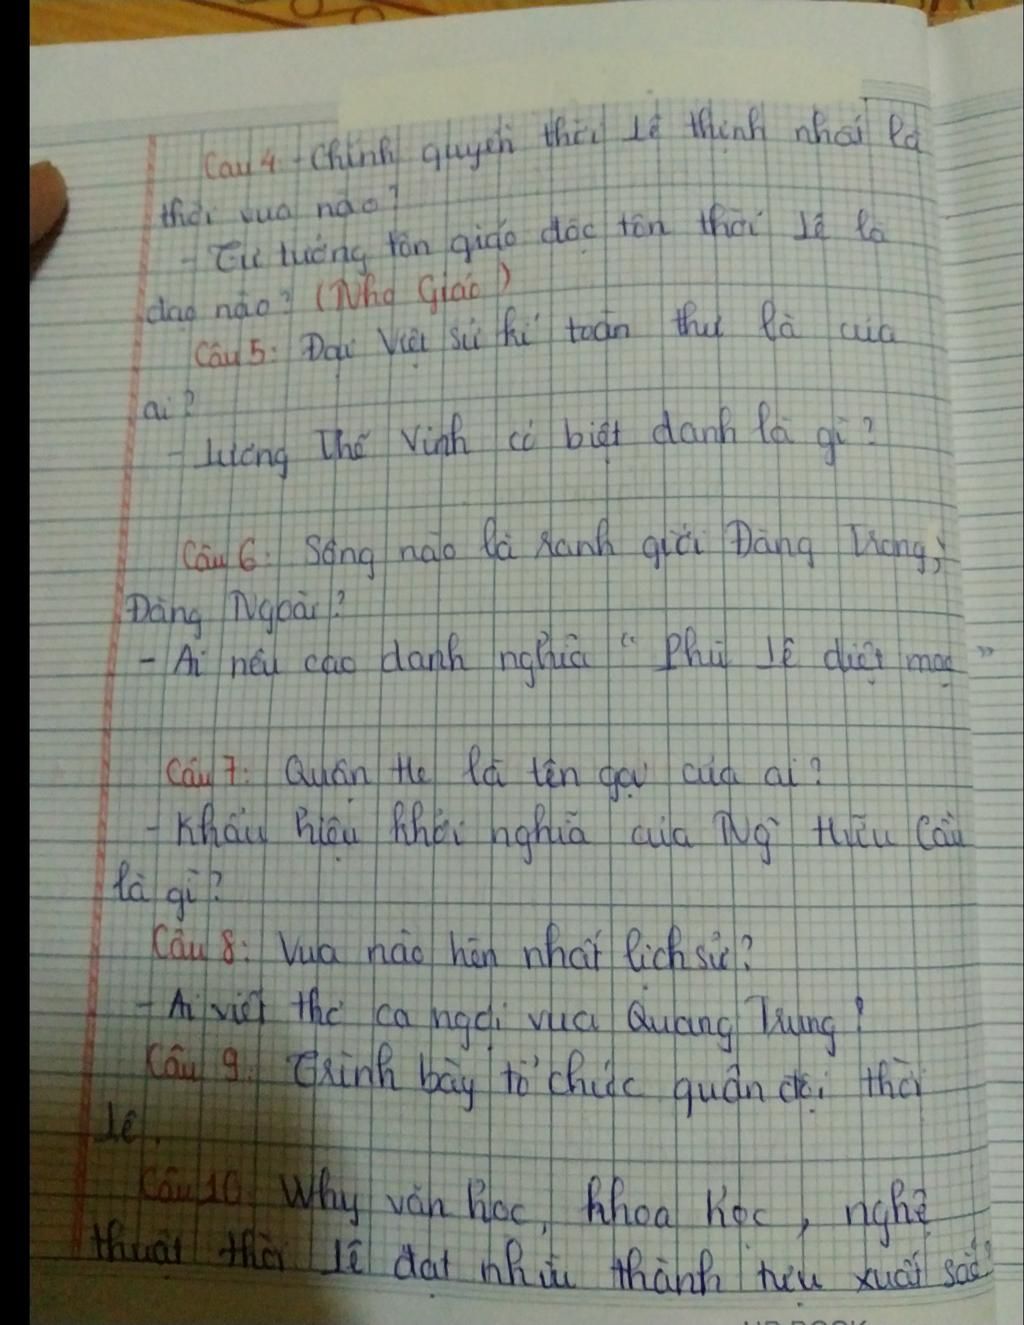 Câu 4: - Chính quyền thời Lê thịnh nhất là
thời vua nào?
- Tư tưởng tôn giáo độc tôn thời Lê là
đạo nào? (Nho Giáo)
Câu 5: Đại Việt sử kí toàn thư là của
ai?
- Lương Thế Vinh có biệt danh là gì?
Câu 6: Sông nào là ranh giới Đàng Trong,
Đàng Ngoài?
- Ai nêu cao danh nghĩa " Phù Lê diệt mạc "
Câu 7: Quận He là tên gọi của ai?
- Khẩu hiệu khởi nghĩa của Ng~ Hữu Cầu
là gì?
Câu 8: Vua nào hèn nhất lịch sử?
- Ai viết thơ ca ngợi vua Quang Trung?
Câu 9: Trình bày tổ chức quân đội thời
Lê.
Câu 10: Why văn học, khoa học, nghệ
thuật thời Lê đạt nhiều thành tựu xuất sắc?